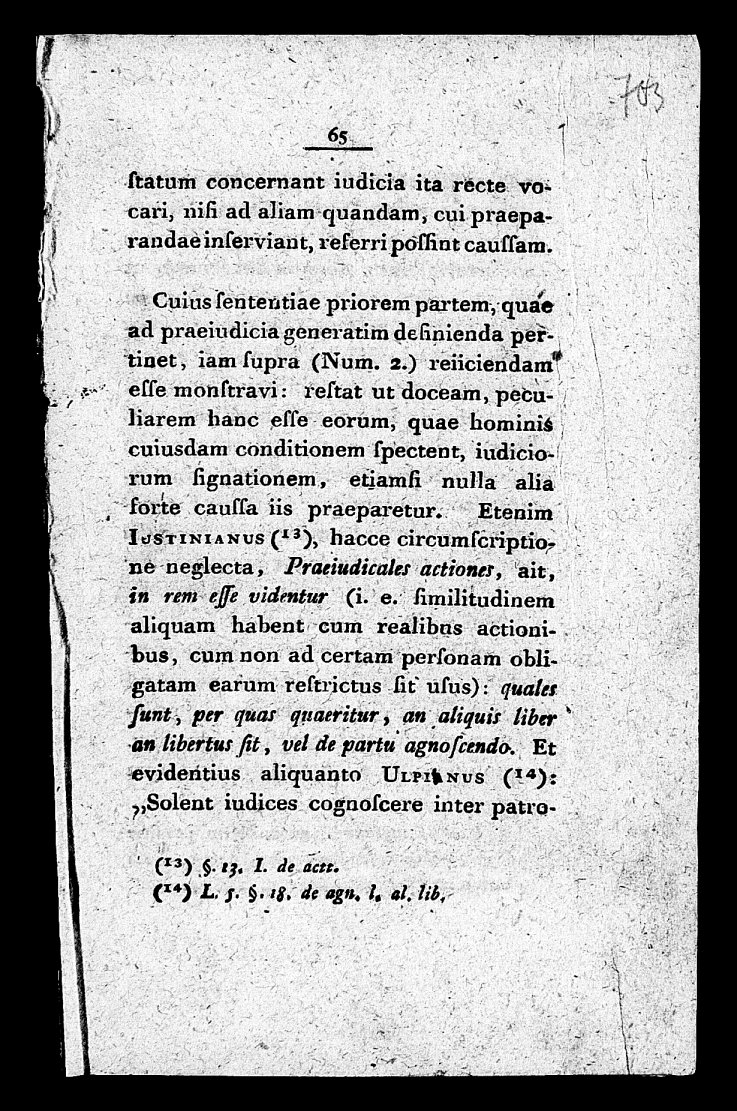 703
65
ſtatum concernant iudicia ita recte vo-
cari, niſi ad aliam quandam, cui praepa-
randae inſerviant, referri poſſint cauſſam.
Cuius ſententiae priorem partem, quae
ad praeiudicia generatim definienda per-
tinet, iam ſupra (Num. 2.) reiiciendam
eſſe monſtravi: reſtat ut doceam, pecu-
liarem hanc eſſe eorum, quae hominis
cuiusdam conditionem ſpectent, iudicio-
rum ſignationem, etiamſi nulla alia
forte cauſſa iis praeparetur. Etenim
IUSTINIANUS (13), hacce circumſcriptio-
ne neglecta, Praeiudicales actiones, ait,
in rem eſſe videntur (i. e. ſimilitudinem
aliquam habent cum realibus actioni-
bus, cum non ad certam perſonam obli-
gatam earum reſtrictus ſit uſus): quales
ſunt, per quas quaeritur, an aliquis liber
an libertus ſit, vel de partu agnoſcendo. Et
evidentius aliquanto ULPIANUS (14):
„Solent iudices cognoſcere inter patro-
(13) §. 13. I. de actt.
(14) L. 5. §. 18. de agn. l. al. lib.